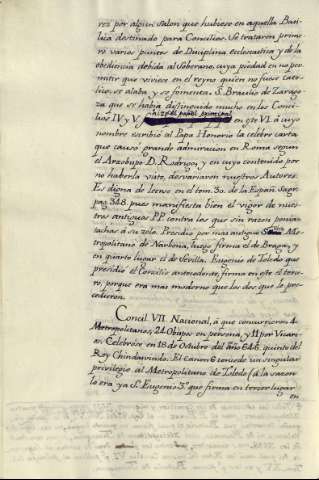 rez por algun salon que hubiese en aquella Basi-
lica destinado para Concilios. Se trataron prime-
ro varios puntos de Disciplina eclesiastica y de la
obediencia debida al Soberano, cuya piedad en no per-
mitir que viviese en el reyno quien no fuese cató-
lico se alaba y se fomenta. S. Braulio de Zarago-
za que se habia distinguido mucho en los Conci-
lios IV y V. hizo el papel principal en este VI. á cuyo
nombre escribió al Papa Honorio la célebre carta
que causó grande admiracion en Roma segun
el Arzobispo D. Rodrigo, y en cuyo contenido por
no haberla visto, desvariaron nuestros Autores.
Es digna de leerse en el tom. 30. de la España Sagr.
pag. 348. pues manifiesta bien el vigor de nues-
tros antiguos PP. contra los que sin razon ponian
tachas á su zelo. Presidio por mas antiguo Me-
tropolitano de Narbona, luego firma el de Braga, y
en quarto lugar el de Sevilla. Eugenio de Toledo que
presidió el Concilio antecedente, firma en este el terce-
ro, porque era mas moderno que los dos que le pre-
cedieron.
Concil. VII. Nacional, á que concurrieron 4.
Metropolitanos, 24 Obispos en persona, y 11 por Vicari-
os. Celebrose en 18 de Octubre del año 646. quinto del
Rey Chindasvindo. El canon 6 concede un singular
privilegio al Metropolitano de Toledo (á la sazon
lo era ya S. Eugenio 3º que firma en tercer lugar
en